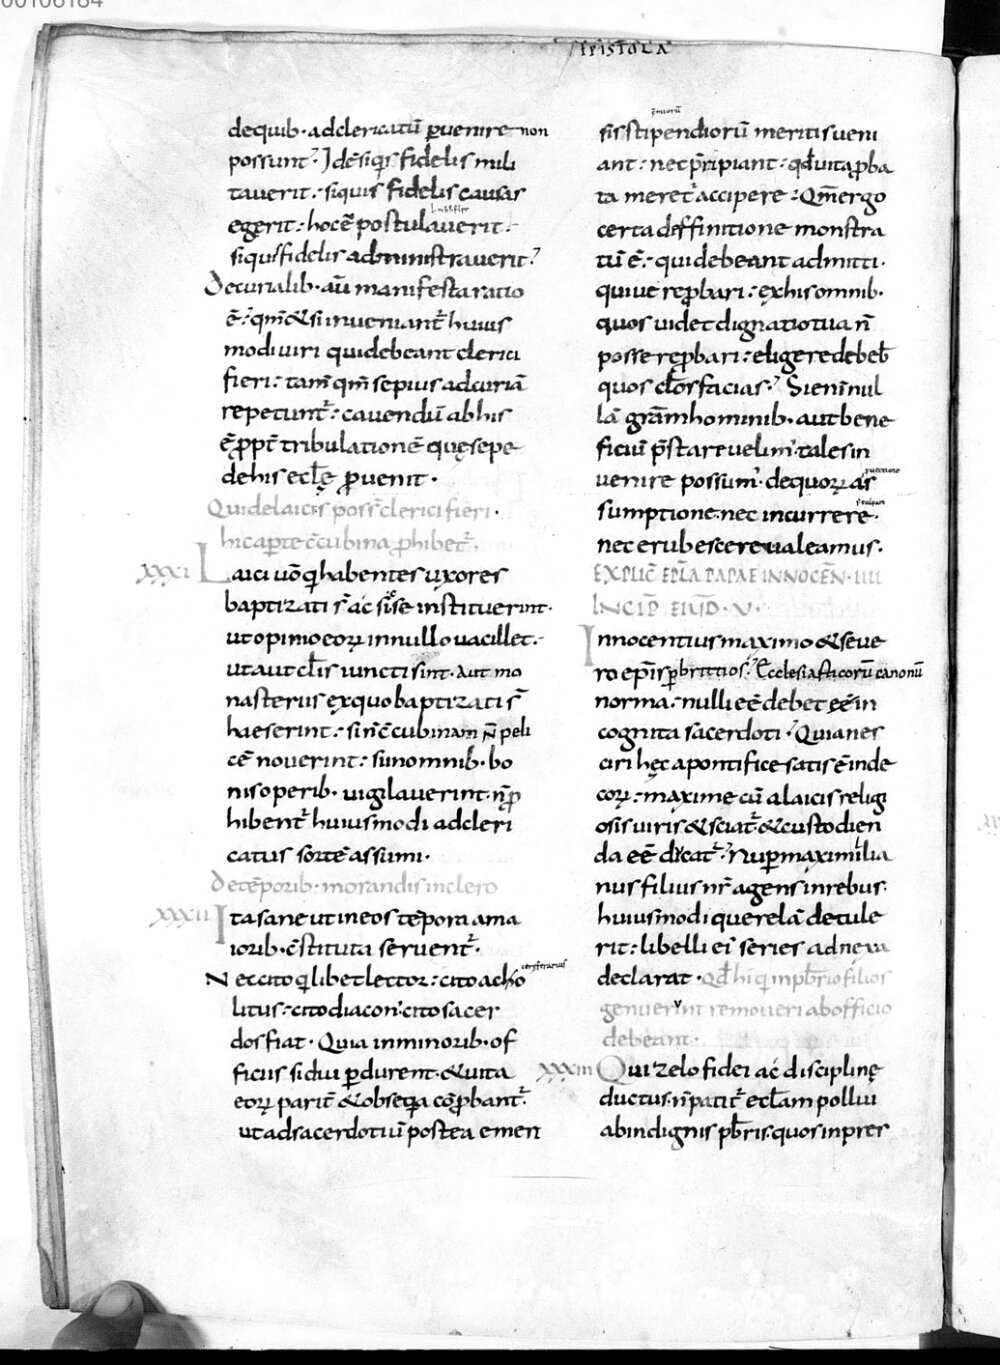 EPISTOLA
dequib· adclericatū ꝑuenire non
possunt· Idē siq̇s fidelis mili
tauerit· siquis fidelis causas
egerit· hoc ē postulauerit·
siquis fidelis administrauerit·
Decurialib· aū manifesta ratio
ē· qm̄ & si inueniant᷑ huius
modi uiri qui debeant clerici
fieri· tam̄ qm̄ sepius ad curiā
repetunt᷑· cauendū ab his
ē ꝓpt̄ tribulationē quę sepe
de his ecl̄ę ꝓuenit·
Qui de laicis poss̄ clerici fieri·
hic aperte c̄cubina ꝓhibet᷑·
XXXI Laici uō q̇ habentes uxores
baptizati s̄ ac̄ si se instituerint·
ut opinio eoꝝ in nullo uacillet·
ut aut cl̄is iuncti sint· aut mo
nasteriis ex quo baptizati s̄
haeserint· si n̄ c̄cubinam n̄ peli
cē nouerint· si in omnib· bo
nis operib· uigilauerint· n̄ ꝓ
hibent᷑ huiusmodi ad cleri
catus sortē assumi·
De tēporib· morandis in clero
XXXII Ita sane ut in eos tēpora a ma
iorib· c̄stituta seruent᷑·
Nec cito q̇libet lector· cito acho
litus· cito diacon· cito sacer
dos fiat· Quia in minorib· of
ficiis si diu ꝑdurent· & uita
eoꝝ parit̄ & obseq̇a cōprobant᷑·
ut ad sacerdotiū postea emen
sis stipendiorū meritis ueni
ant· nec p̄ripiant· qd̄ uita ꝓba
ta meret᷑ accipere· Qm̄ ergo
certa diffinitione monstra
tū ē· qui debeant admitti·
quiue reꝓbari· ex his omnib·
quos uidet dignatio tua n̄
posse reꝓbari· eligere debeb
quos cl̄os facias· Si enī nul
lā gr̄am hominib· aut bene
ficiū p̄stare uelim· tales in
uenire possum· de quoꝝ as
sumptione· nec incurrere·
nec erubescere ualeamus·
EXPLIC̄ EPL̄A PAPAE INNOCEN̄· IIII
INCIP̄ EIUD̄· V·
Innocentius maximo & seue
ro ep̄is ꝑ brittios· Ecclesiasticorū canonū
norma· nulli eē debet eē in
cognita sacerdoti· Quia nes
ciri hęc a pontifice satis ē inde
coꝝ· maxime cū a laicis religi
osis uiris & sciat᷑ & custodien
da eē dicat᷑· Nuꝑ maximilia
nus filius nr̄ agens in rebus·
huiusmodi querelā detule
rit· libelli ei series adnexa
declarat· Qd̄ hi q̇ in pb̄rio filios
genuerint remoueri ab officio
debeant·
XXXIII Qui zelo fidei ac̄ disciplinę
ductus· n̄ patit᷑ ecl̄am pollui
ab indignis pb̄ris· quos in pres